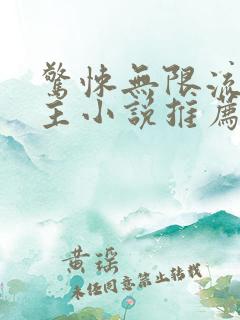 驚悚無限流
主小說推薦
黄瑶
未经同意禁止转载